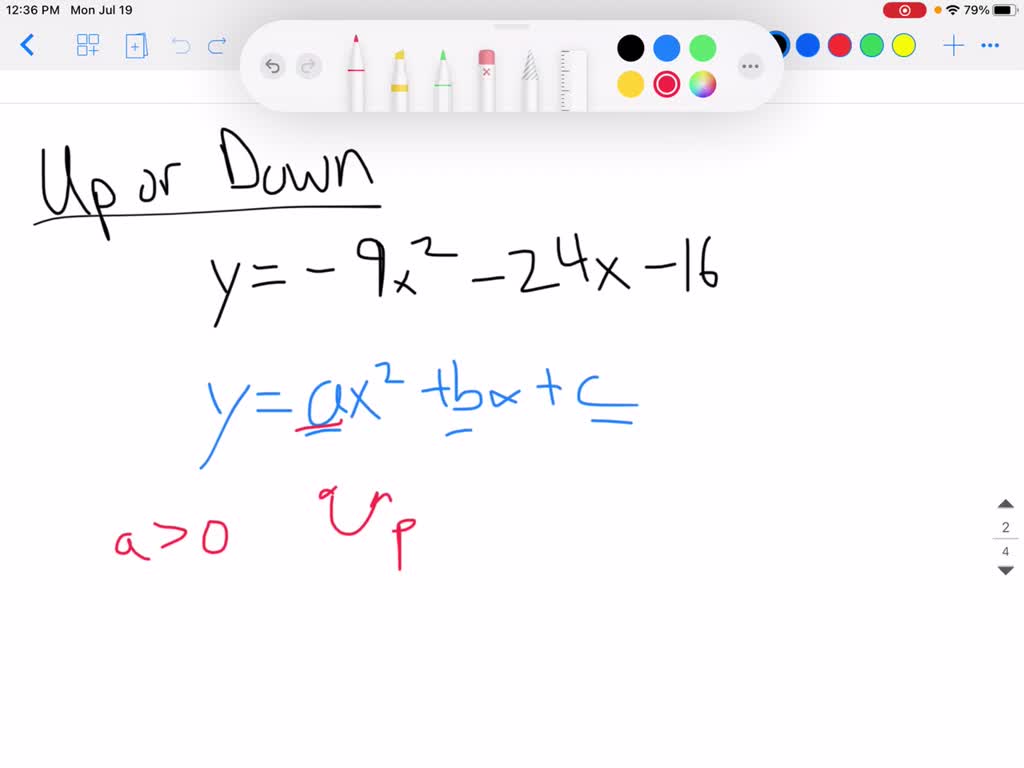 12:36 PM Mon Jul 19
79%
Up or Down
y = -9x² - 24x - 16
y = ax² + bx + c
a > 0 Up
2
4